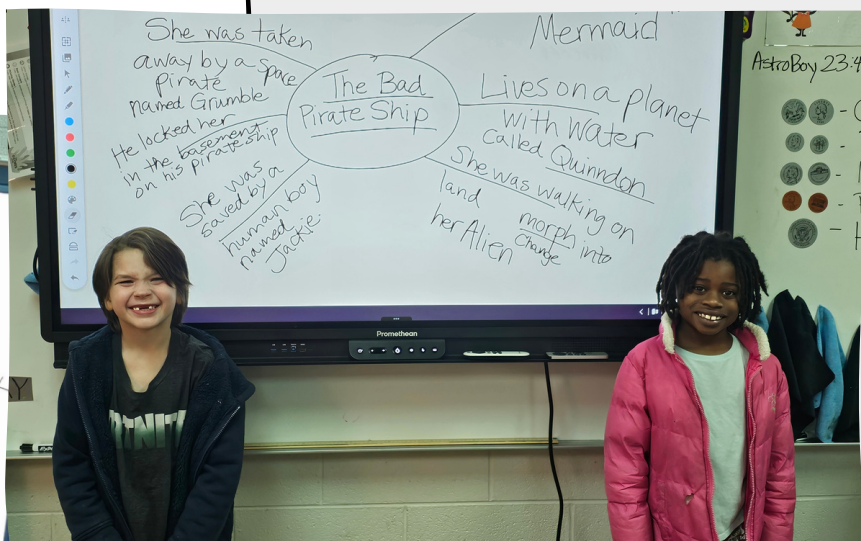 She was taken
away by a space
pirate
named Grumble
He locked her
in the basement
on his pirateship
She was
saved by a
human boy
named
Jackie.
The Bad
Pirate Ship
Mermaid
Lives on a planet
with water
called Quinndon
She was walking on
land
her Alien
morph into
change
Promethean
AstroBoy 23:4